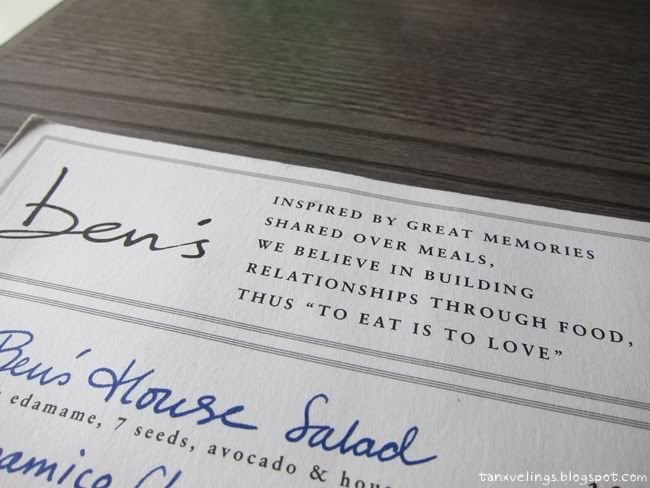 ben's
INSPIRED BY GREAT MEMORIES
SHARED OVER MEALS,
WE BELIEVE IN BUILDING
RELATIONSHIPS THROUGH FOOD,
THUS “TO EAT IS TO LOVE”
Ben's House Salad
edamame, 7 seeds, avocado &
tanxvelings.blogspot.com